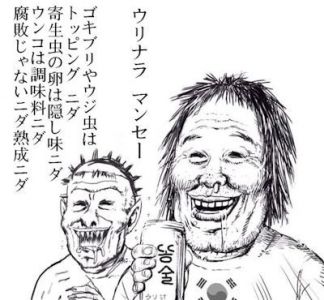 ウリナラ マンセー
ゴキブリやウジ虫は
トッピング ニダ
寄生虫の卵は隠し味ニダ
ウンコは調味料ニダ
腐敗じゃないニダ熟成ニダ
똥술